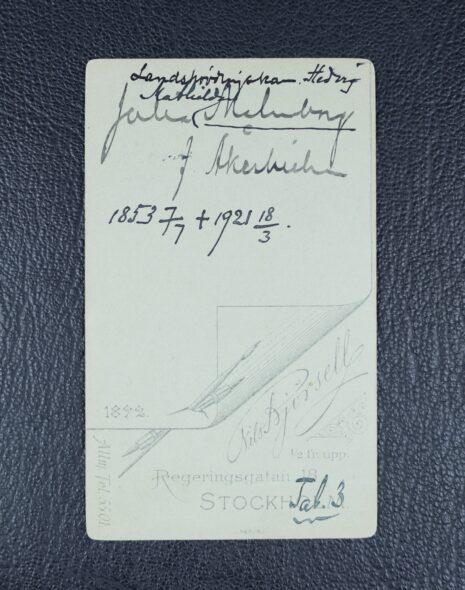 Landshövdingskan. Hedvig
Mathilda
Julia Malmborg
f Åkerhielm
1853 7/7 + 1921 18/3.
1892.
Nils Björsell
½ tr. upp.
Regeringsgatan 18
STOCKHOLM.
Allm. Tel. 5501.
Tab. 3